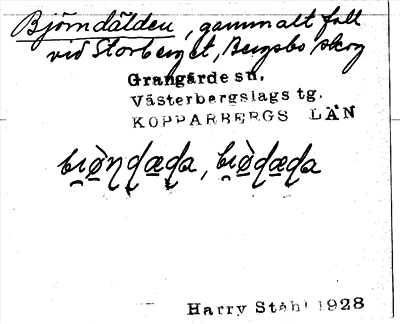 Björndälden, gammalt fall
vid Storberget, Bergsbo skog
Grangärde sn.
Västerbergslags tg.
KOPPARBERGS LÄN
Harry Ståhl 1928